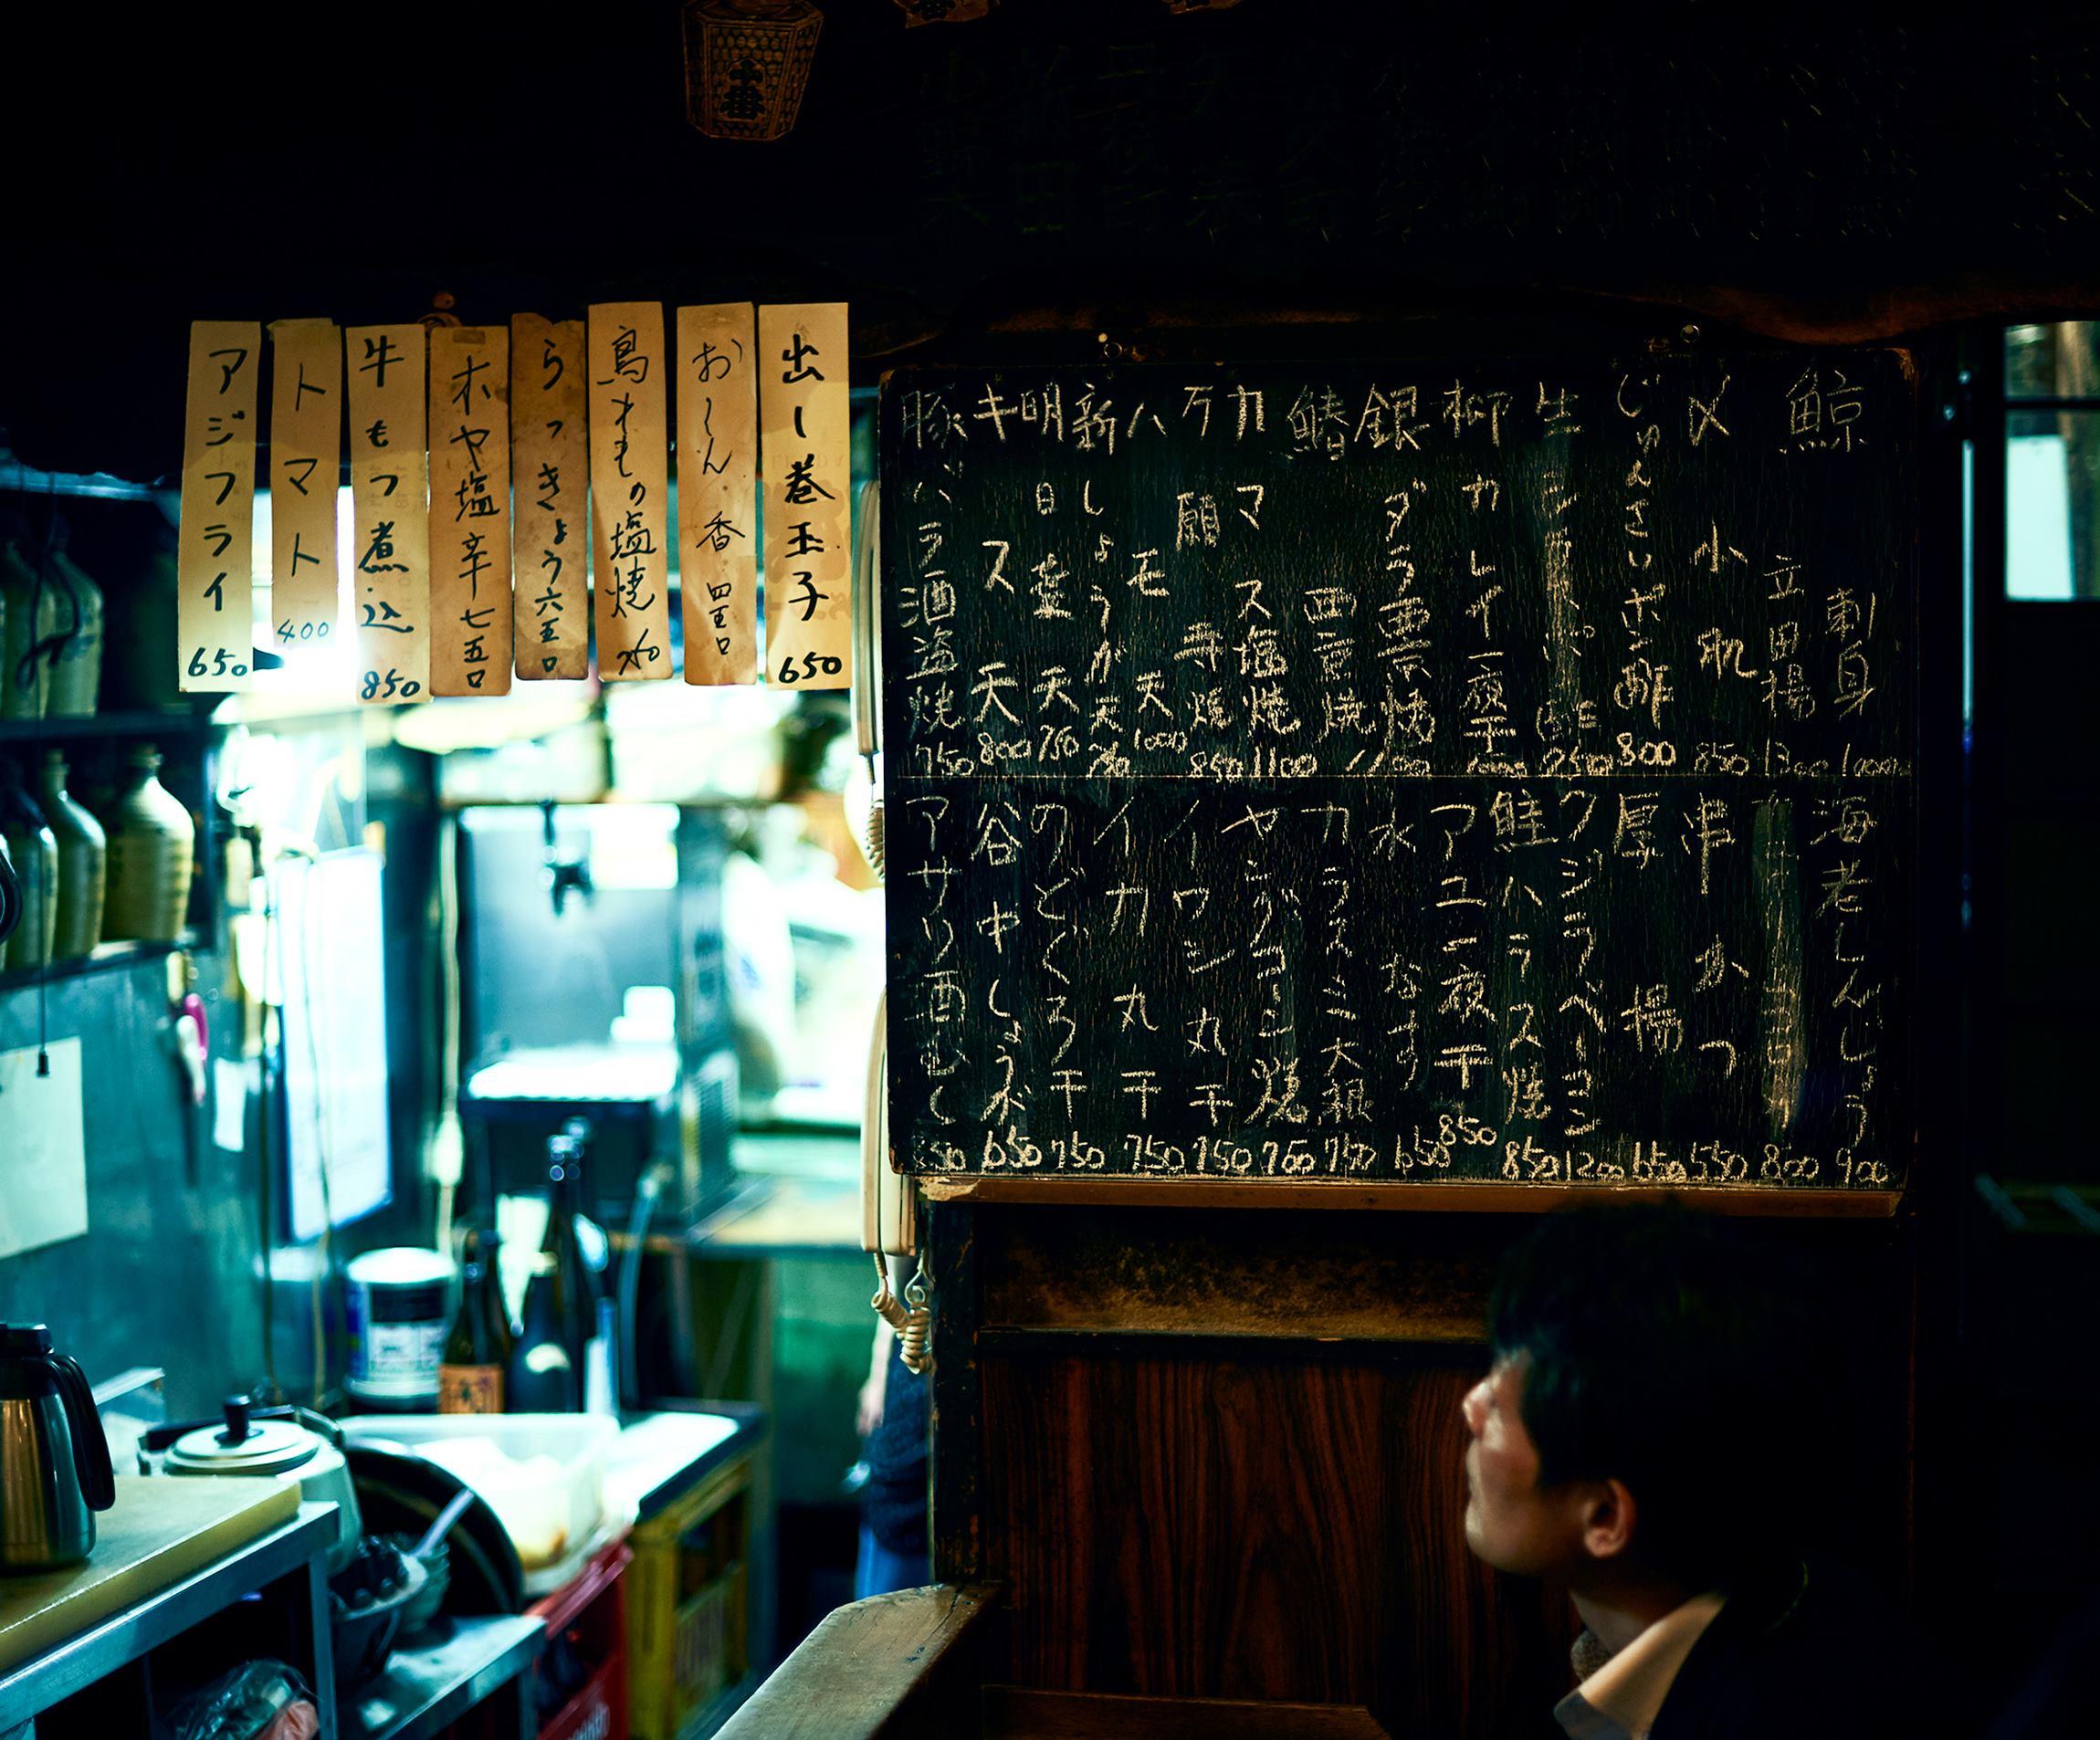 十番
出し巻玉子 650
おしん香 四五口
鳥ももの塩焼
らっきょう 六五口
ホヤ塩辛 七五口
牛もつ煮込 850
トマト 400
アジフライ 650
鯨刺身 1000
立田揚 1300
〆小肌 850
じゅんさいポン酢 800
生
柳カレイ一夜干
銀ダラ西京焼
鰆西京焼
カマス塩焼 1100
万願寺焼 850
ハモ天 1000
新しょうが天
明日葉天 750
キス天 800
豚バラ酒盗焼 750
海老しんじょう 900
800
串かつ 550
厚揚 650
クジラベーコン 1200
鮭ハラス焼 850
アユ一夜干 850
水なす 650
カラスミ大根 750
ヤングコーン焼 700
イワシ丸干 750
イカ丸干 750
のどぐろ干 750
谷中しょうが 650
アサリ酒むし